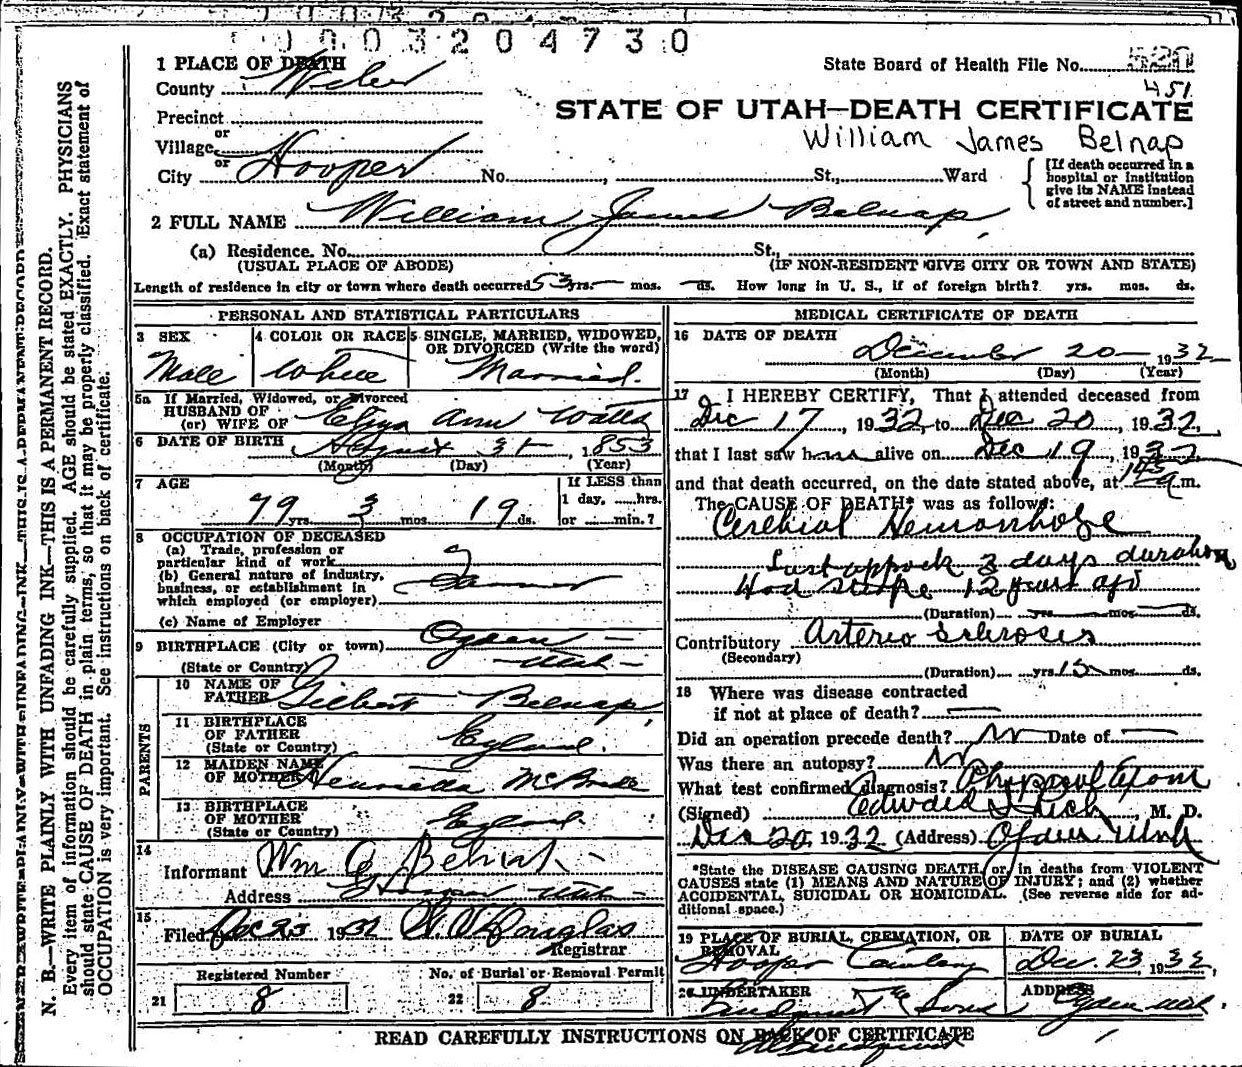 0003204730
1 PLACE OF DEATH
County Weber
State Board of Health File No. 520
451
STATE OF UTAH—DEATH CERTIFICATE
William James Belnap
Precinct
or
Village
or
City Hooper No. , St., Ward
[If death occurred in a hospital or institution give its NAME instead of street and number.]
2 FULL NAME William James Belnap
(a) Residence. No. St.,
(USUAL PLACE OF ABODE) (IF NON-RESIDENT GIVE CITY OR TOWN AND STATE)
Length of residence in city or town where death occurred 53 yrs. — mos. — ds. How long in U. S., if of foreign birth? yrs. mos. ds.
PERSONAL AND STATISTICAL PARTICULARS
3 SEX
Male
4 COLOR OR RACE
White
5 SINGLE, MARRIED, WIDOWED, OR DIVORCED (Write the word)
Married.
5a If Married, Widowed, or Divorced
HUSBAND OF
(or) WIFE OF Eliza Ann Watts
6 DATE OF BIRTH August 31, 1853
(Month) (Day) (Year)
7 AGE
79 yrs. 3 mos. 19 ds.
If LESS than
1 day, ......hrs.
or ......min.?
8 OCCUPATION OF DECEASED
(a) Trade, profession or
particular kind of work
(b) General nature of industry,
business, or establishment in
which employed (or employer)
Farmer
(c) Name of Employer
9 BIRTHPLACE (City or town) Ogden —
(State or Country) Utah —
PARENTS
10 NAME OF
FATHER Gilbert Belnap,
11 BIRTHPLACE
OF FATHER
(State or Country) England.
12 MAIDEN NAME
OF MOTHER Henrietta McBride
13 BIRTHPLACE
OF MOTHER
(State or Country) England.
14
Informant Wm Belnap
Address Utah —
15
Filed Dec 23 1932 Douglas
Registrar
Registered Number
21 8
No. of Burial or Removal Permit
22 8
MEDICAL CERTIFICATE OF DEATH
16 DATE OF DEATH
December 20 — 1932
(Month) (Day) (Year)
17 I HEREBY CERTIFY, That I attended deceased from
Dec 17, 1932, to Dec 20, 1932,
that I last saw him alive on Dec 19, 1932
and that death occurred, on the date stated above, at a.m.
The CAUSE OF DEATH* was as follows:
Cerebral Hemorrhage
Last 3 days duration
Had stroke 12 years ago
(Duration) yrs. mos. ds.
Contributory Arterio Sclerosis
(Secondary)
(Duration) yrs. 15 mos. ds.
18 Where was disease contracted
if not at place of death? —
Did an operation precede death? No Date of —
Was there an autopsy? No
What test confirmed diagnosis? Physical Exam
(Signed) Edward I. Rich, M. D.
Dec 20, 1932 (Address) Ogden Utah
*State the DISEASE CAUSING DEATH, or, in deaths from VIOLENT
CAUSES state (1) MEANS AND NATURE OF INJURY; and (2) whether
ACCIDENTAL, SUICIDAL OR HOMICIDAL. (See reverse side for ad-
ditional space.)
19 PLACE OF BURIAL, CREMATION, OR
REMOVAL
Hooper Cemetery
DATE OF BURIAL
Dec. 23, 1932,
20 UNDERTAKER
Lindquist & Sons
ADDRESS
Ogden Utah.
READ CAREFULLY INSTRUCTIONS ON BACK OF CERTIFICATE
N. B.—WRITE PLAINLY WITH UNFADING INK—THIS IS A PERMANENT RECORD.
Every item of information should be carefully supplied. AGE should be stated EXACTLY. PHYSICIANS
should state CAUSE OF DEATH in plain terms, so that it may be properly classified. Exact statement of
OCCUPATION is very important. See instructions on back of certificate.